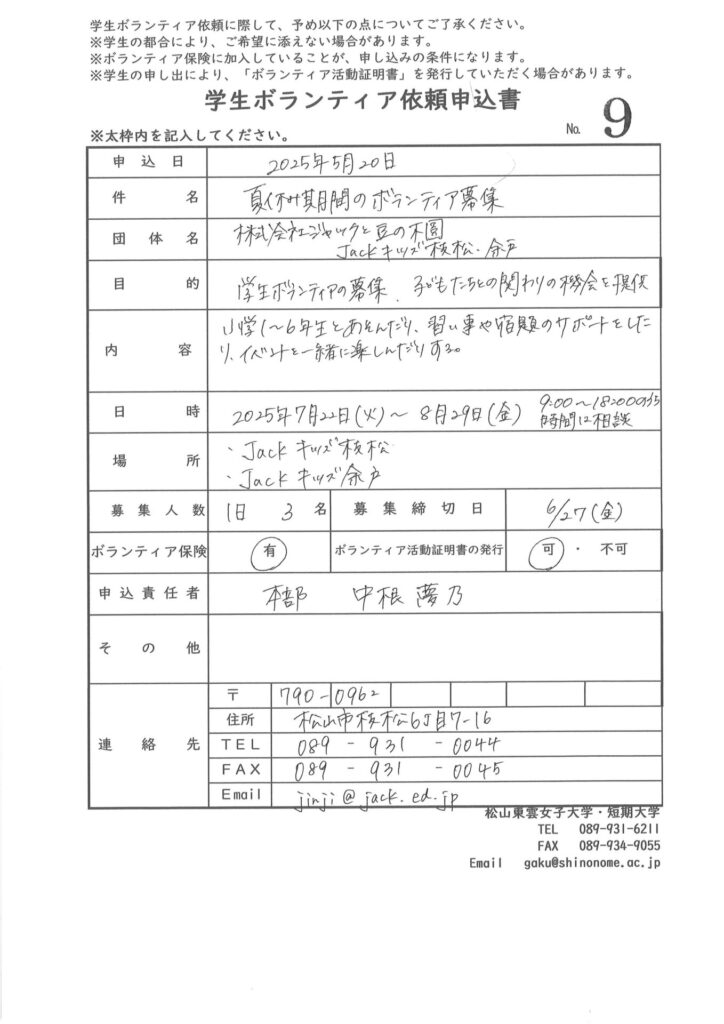 学生ボランティア依頼に際して、予め以下の点についてご了承ください。
※学生の都合により、ご希望に添えない場合があります。
※ボランティア保険に加入していることが、申し込みの条件になります。
※学生の申し出により、「ボランティア活動証明書」を発行していただく場合があります。
学生ボランティア依頼申込書
※太枠内を記入してください。
№ 9
申込日 2025年5月20日
件名 夏休み期間のボランティア募集
団体名 株式会社ジャックと豆の木園
Jackキッズ枝松・余戸
目的 学生ボランティアの募集、子どもたちとの関わりの機会を提供
内容 小学1〜6年生とあそんだり、習い事や宿題のサポートをした
り、イベントを一緒に楽しんだりする。
日時 2025年7月22日(火)〜8月29日(金) 9:00〜18:00のうち
時間は相談
場所 ・Jackキッズ枝松
・Jackキッズ余戸
募集人数 1日 3名 募集締切日 6/27(金)
ボランティア保険 有 ボランティア活動証明書の発行 可・不可
申込責任者 本部 中根 夢乃
その他
連絡先
〒 790-0962
住所 松山市枝松6丁目7-16
TEL 089-931-0044
FAX 089-931-0045
Email jinji@jack.ed.jp
松山東雲女子大学・短期大学
TEL 089-931-6211
FAX 089-934-9055
Email gaku@shinonome.ac.jp